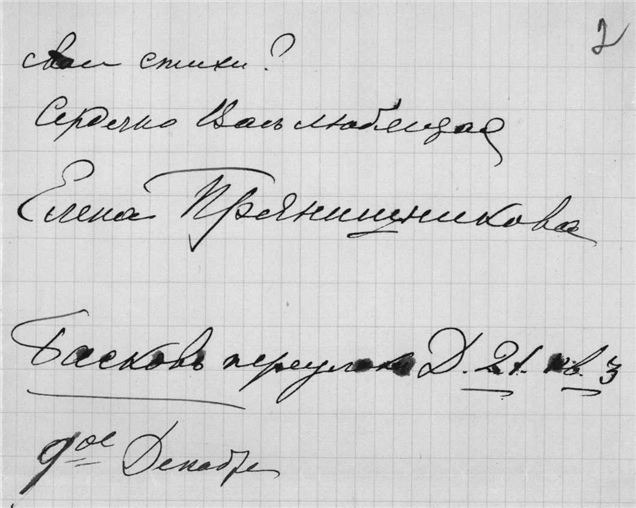 2
свои стихи?
Сердечно Васъ любящая
Елена Прянишникова
Басковъ переулокъ Д. 21. кв. 3
9ое Декабря